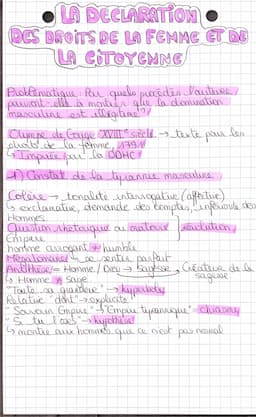 LA DECLARATION
DES DROITS DE LA FEMME ET DE
LA CITOYENNE
Problématique: Par quels procédés l'autrice
parvient-elle à montrer que la domination
masculine est illégitime?
Olympe de Gouge XVIII° siècle → texte pour les
droits de la femme, 1791
↳ Inspirée par la DDHC
1) Constat de la tyrannie masculine
Colère → tonalité interrogative
↳ exclamative, demande des comptes,
Hommes
Question rhétorique ou oratoire
Empire
homme arrogant ≠ humble
Mégalomanie → se sentir parfait
Antithèse → Homme / Dieu → Sagesse → Créature de la
↳ Homme ≠ Sage sagesse
"Toute sa grandeur" → hyperbole
Relative "dont" → explicite
"Souverain Empire" → "Empire tyrannique" → chiasme
"Si tu l'oses" → hypothèse
↳ montre aux hommes que ce n'est pas normal